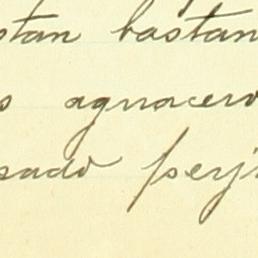 stan bastan
s aguacero
sado perj